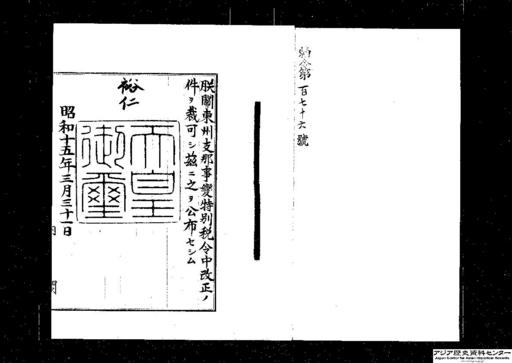 勅令第百七十六號
朕關東州支那事變特別税令中改正ノ
件ヲ裁可シ茲ニ之ヲ公布セシム
裕仁
天皇
御璽
昭和十五年三月三十一日
アジア歴史資料センター
Japan Center for Asian Historical Records